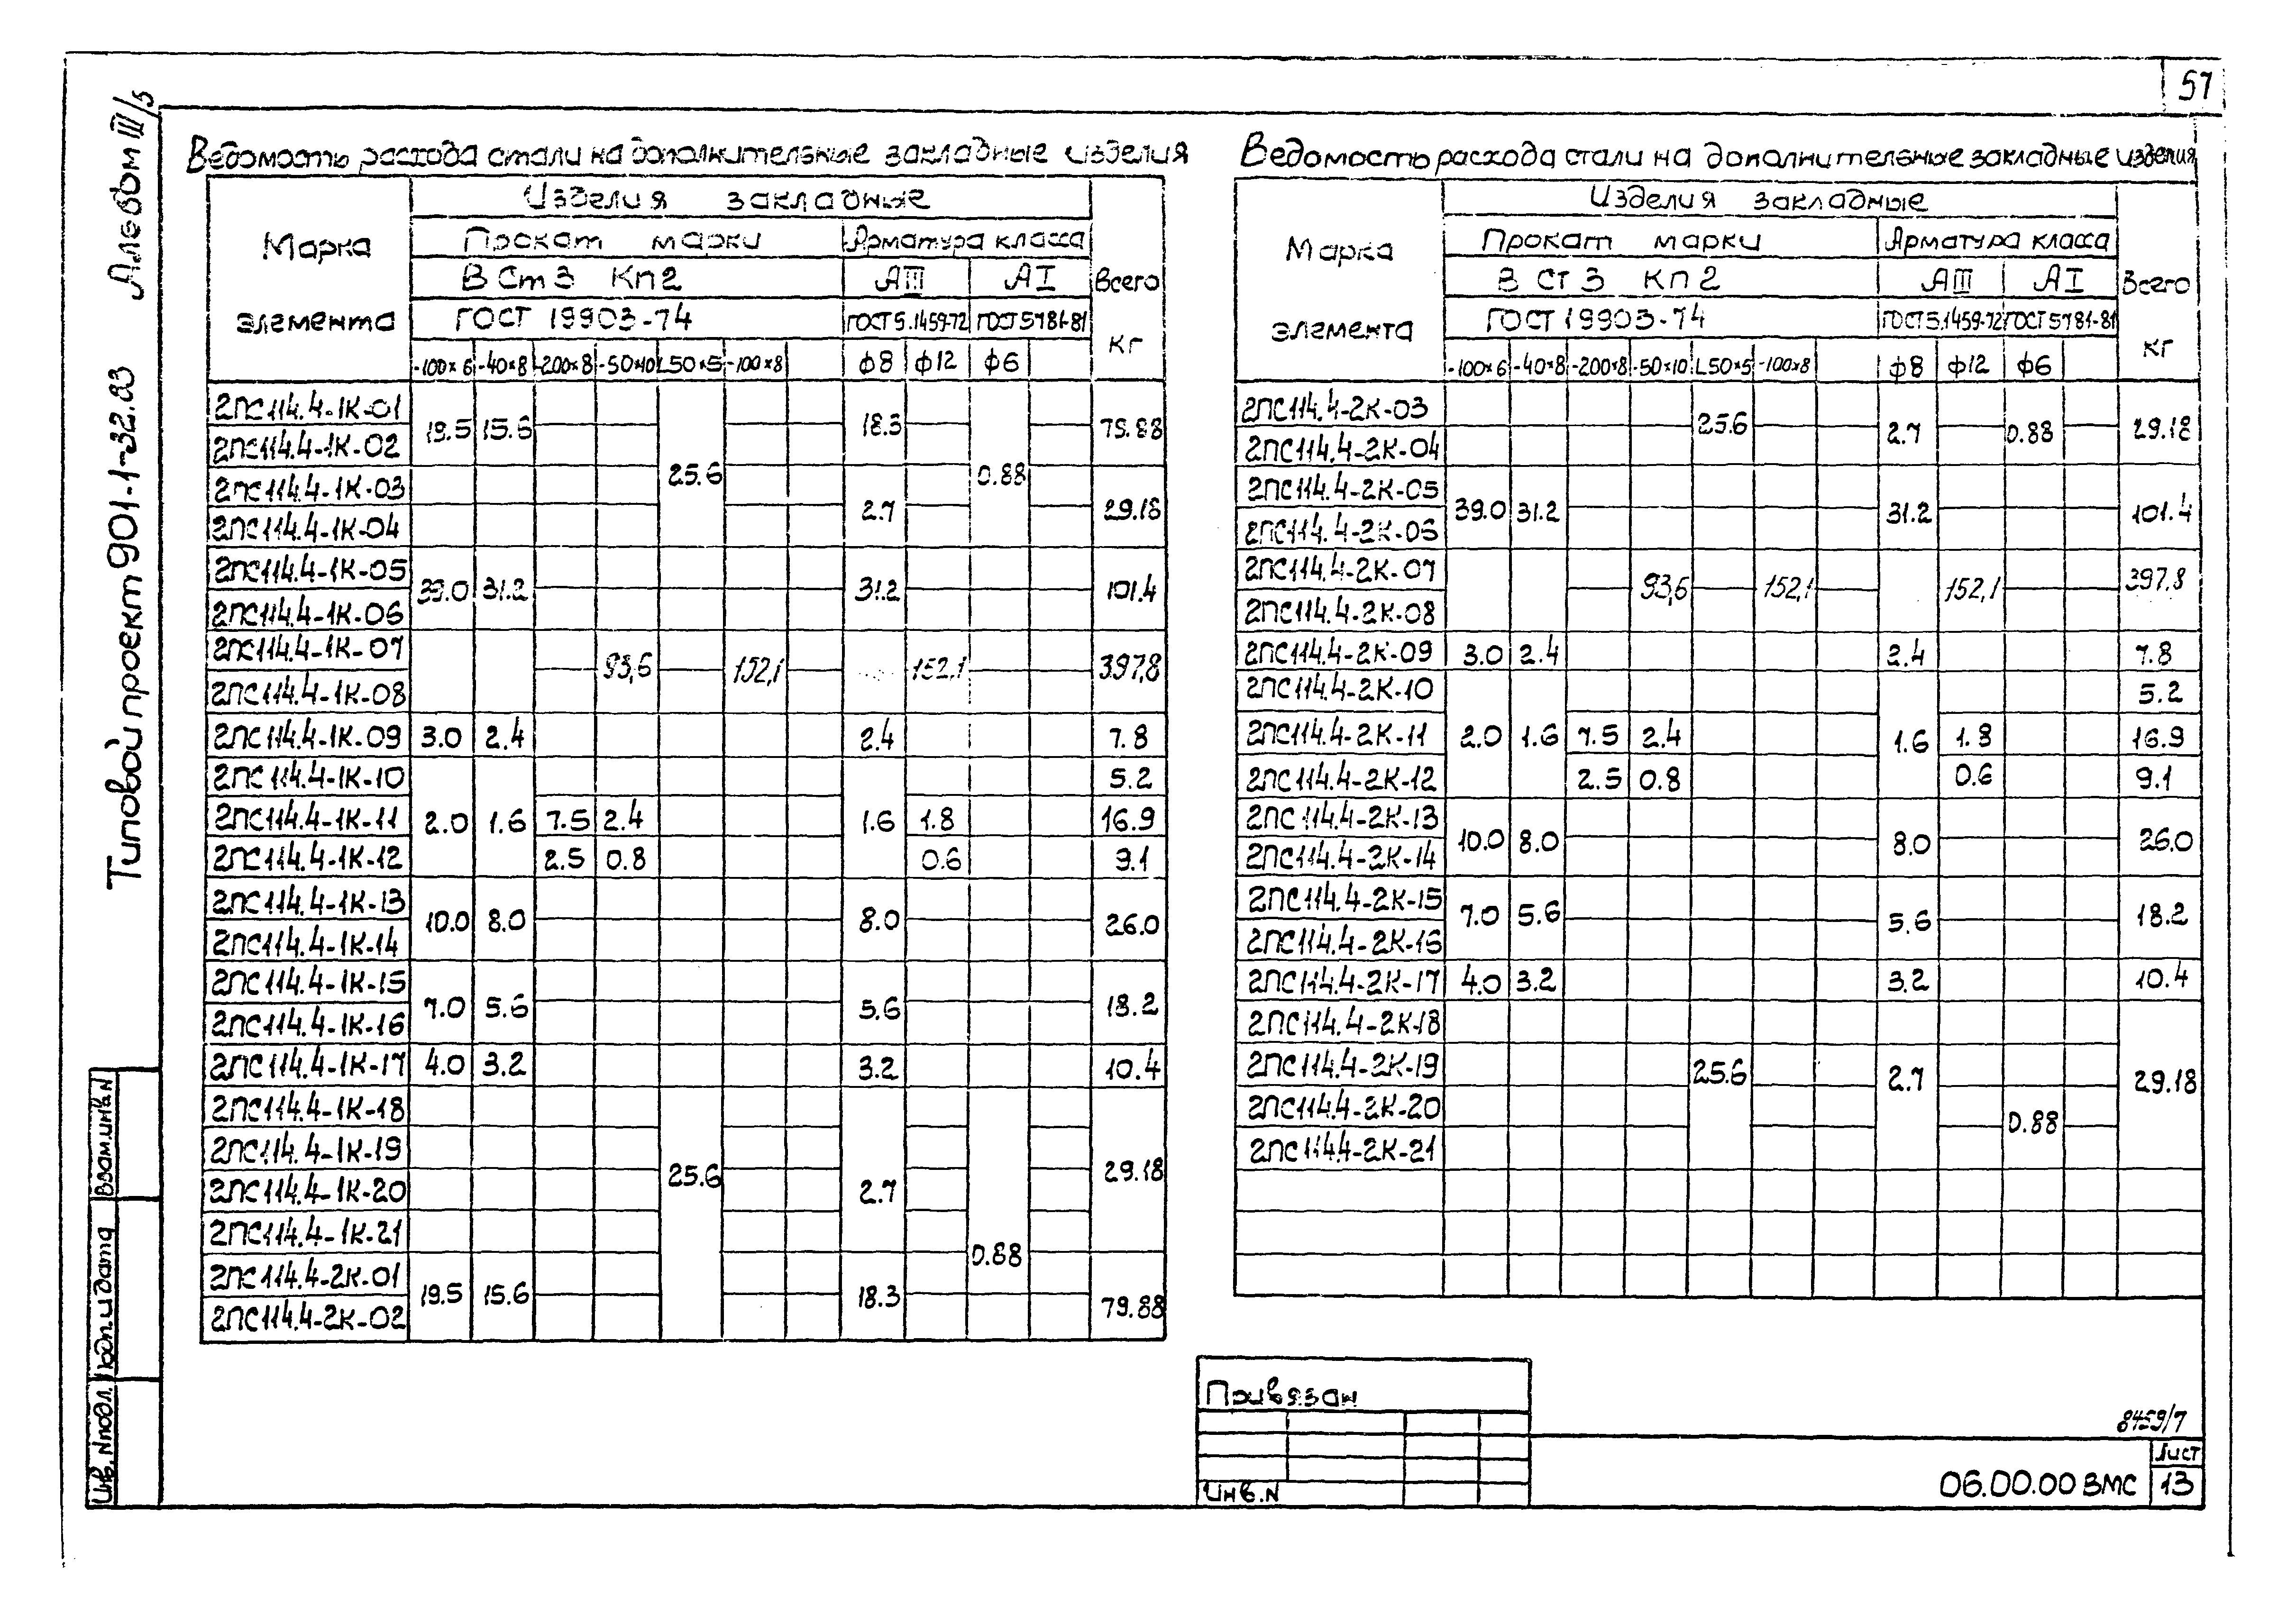 57
Альбом III/5
Типовой проект 901-1-32.83
Взам.инв.N
Подп.и дата
Инв.Nподл.
Ведомость расхода стали на дополнительные закладные изделия
Марка элемента
Изделия закладные
Всего кг
Прокат марки
Арматура класса
В Ст 3 Кп 2
АIII
АI
ГОСТ 19903-74
ГОСТ 5.1459-72
ГОСТ 5781-81
-100×6 -40×8 -200×8 -50×10 L50×5 -100×8 ф8 ф12 ф6
2ПС114.4-1К-01 19.5 15.6 25.6 18.3 0.88 79.88
2ПС114.4-1К-02
2ПС114.4-1К-03 2.7 29.18
2ПС114.4-1К-04
2ПС114.4-1К-05 39.0 31.2 31.2 101.4
2ПС114.4-1К-06
2ПС114.4-1К-07 93,6 152,1 152,1 397,8
2ПС114.4-1К-08
2ПС114.4-1К-09 3.0 2.4 2.4 7.8
2ПС114.4-1К-10 5.2
2ПС114.4-1К-11 2.0 1.6 7.5 2.4 1.6 1.8 16.9
2ПС114.4-1К-12 2.5 0.8 0.6 9.1
2ПС114.4-1К-13 10.0 8.0 8.0 26.0
2ПС114.4-1К-14
2ПС114.4-1К-15 7.0 5.6 5.6 18.2
2ПС114.4-1К-16
2ПС114.4-1К-17 4.0 3.2 3.2 10.4
2ПС114.4-1К-18
2ПС114.4-1К-19
2ПС114.4-1К-20 25.6 2.7 29.18
2ПС114.4-1К-21
2ПС114.4-2К-01 19.5 15.6 18.3 0.88 79.88
2ПС114.4-2К-02
Ведомость расхода стали на дополнительные закладные изделия
Марка элемента
Изделия закладные
Всего кг
Прокат марки
Арматура класса
В Ст 3 Кп 2
АIII
АI
ГОСТ 19903-74
ГОСТ 5.1459-72
ГОСТ 5781-81
-100×6 -40×8 -200×8 -50×10 L50×5 -100×8 ф8 ф12 ф6
2ПС114.4-2К-03 25.6 2.7 0.88 29.18
2ПС114.4-2К-04
2ПС114.4-2К-05 39.0 31.2 31.2 101.4
2ПС114.4-2К-06
2ПС114.4-2К-07 93,6 152,1 152,1 397,8
2ПС114.4-2К-08
2ПС114.4-2К-09 3.0 2.4 2.4 7.8
2ПС114.4-2К-10 5.2
2ПС114.4-2К-11 2.0 1.6 7.5 2.4 1.6 1.8 16.9
2ПС114.4-2К-12 2.5 0.8 0.6 9.1
2ПС114.4-2К-13 10.0 8.0 8.0 26.0
2ПС114.4-2К-14
2ПС114.4-2К-15 7.0 5.6 5.6 18.2
2ПС114.4-2К-16
2ПС114.4-2К-17 4.0 3.2 3.2 10.4
2ПС114.4-2К-18
2ПС114.4-2К-19 25.6 2.7 29.18
2ПС114.4-2К-20 0.88
2ПС114.4-2К-21
Привязан
Инв.N
8459/7
06.00.00 ВМС
Лист
13